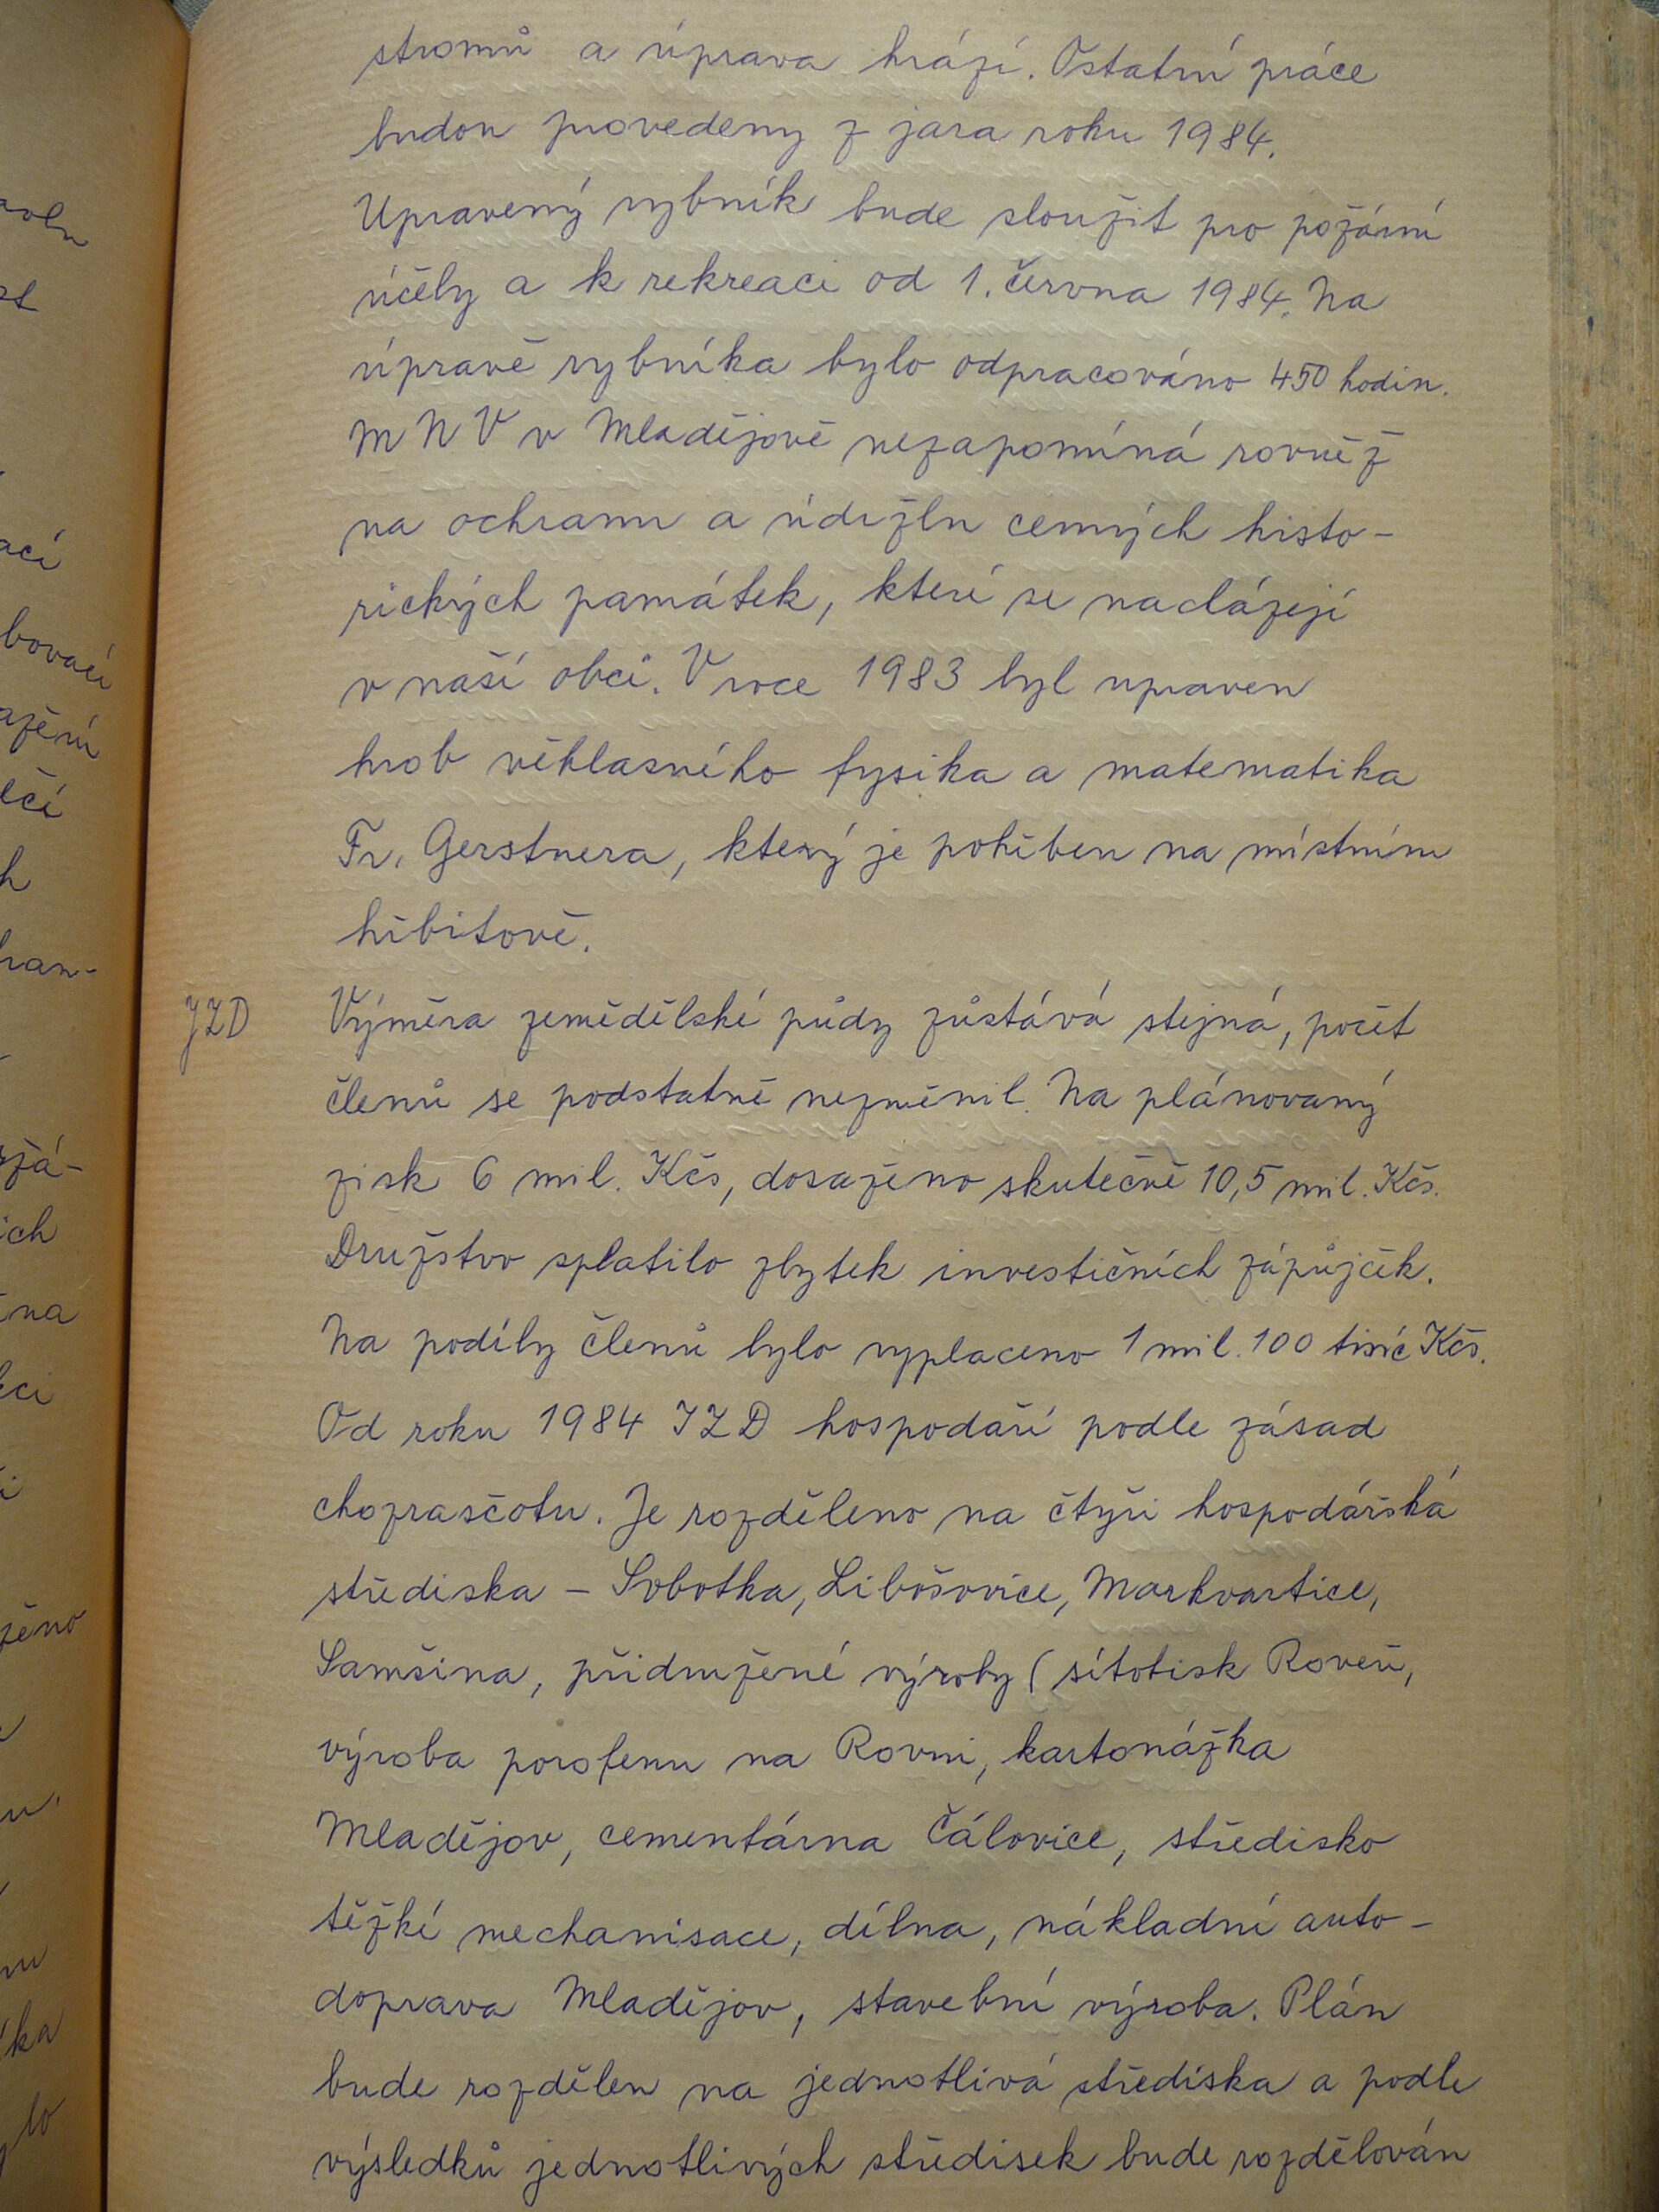 stromů a úprava hrází. Ostatní práce
budou provedeny z jara roku 1984.
Upravený rybník bude sloužit pro požární
účely a k rekreaci od 1. června 1984. Na
úpravě rybníka bylo odpracováno 450 hodin.
MNV v Mladějově nezapomíná rovněž
na ochranu a údržbu cenných histo-
rických památek, které se nacházejí
v naší obci. V roce 1983 byl upraven
hrob věhlasného fysika a matematika
Fr. Gerstnera, který je pohřben na místním
hřbitově.
JZD
Výměra zemědělské půdy zůstává stejná, počet
členů se podstatně nezměnil. Na plánovaný
zisk 6 mil. Kčs, dosaženo skutečně 10,5 mil. Kčs.
Družstvo splatilo zbytek investičních zápůjček.
Na podíly členů bylo vyplaceno 1 mil. 100 tisíc Kčs.
Od roku 1984 JZD hospodaří podle zásad
chozrasčotu. Je rozděleno na čtyři hospodářská
střediska – Sobotka, Libošovice, Markvartice,
Samšina, přidružené výroby (sítotisk Roveň,
výroba porofenu na Rovni, kartonážka
Mladějov, cementárna Čálovice, středisko
těžké mechanisace, dílna, nákladní auto-
doprava Mladějov, stavební výroba. Plán
bude rozdělen na jednotlivá střediska a podle
výsledků jednotlivých středisek bude rozdělován